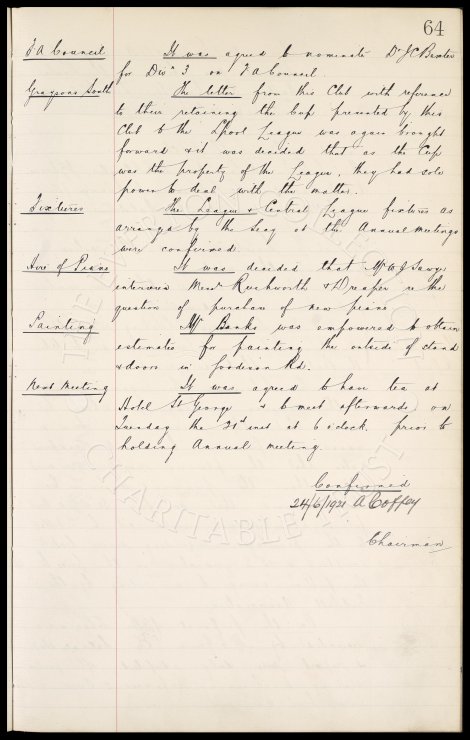 64
F A Council It was agreed to nominate Dr J C Baxter
for Divn 3 on F A Council.
Graysons South The letter from this Club with reference
to their retaining the Cup presented by this
Club to the L'pool League was again brought
forward & it was decided that as the Cup
was the property of the League, they had sole
power to deal with the matter.
Fixtures The League & Central League fixtures as
arranged by the Secy at the Annual meetings
were confirmed
Hire of Piano It was decided that Mr W J Sawyer
interview Messrs Rushworth & Dreaper re the
question of purchase of new piano
Painting Mr Banks was empowered to obtain
estimates for painting the outside of stand
& doors in Goodison Rd.
Next Meeting It was agreed to have tea at
Hotel St George & to meet afterwards on
Tuesday the 21st inst at 6 o'clock. prior to
holding Annual meeting.
Confirmed
24/6/1921 A Coffey
Chairman
CHARITABLE